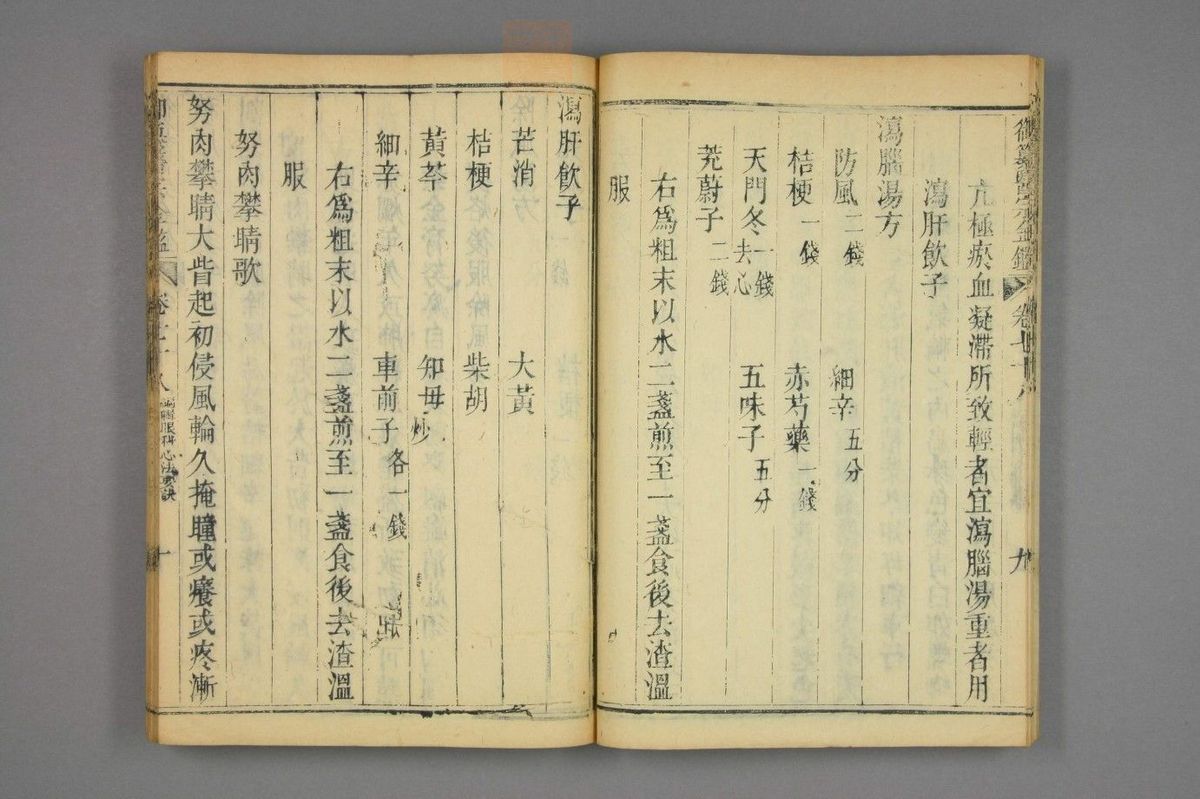 御纂醫宗金鑑 卷七十八 九
亢極瘀血凝滯所致輕者宜瀉腦湯重者用
瀉肝飲子
瀉腦湯方
防風二錢 細辛五分
桔梗一錢 赤芍藥一錢
天門冬去心一錢 五味子五分
茺蔚子二錢
右爲粗末以水二盞煎至一盞食後去渣溫
服
瀉肝飲子
芒消 大黃
桔梗 柴胡
黃芩 知母炒
細辛 車前子各一錢
右爲粗末以水二盞煎至一盞食後去渣溫
服
努肉攀睛歌
努肉攀睛大眥起初侵風輪久掩瞳或癢或疼漸
卷七十八 眼科心法要訣 十